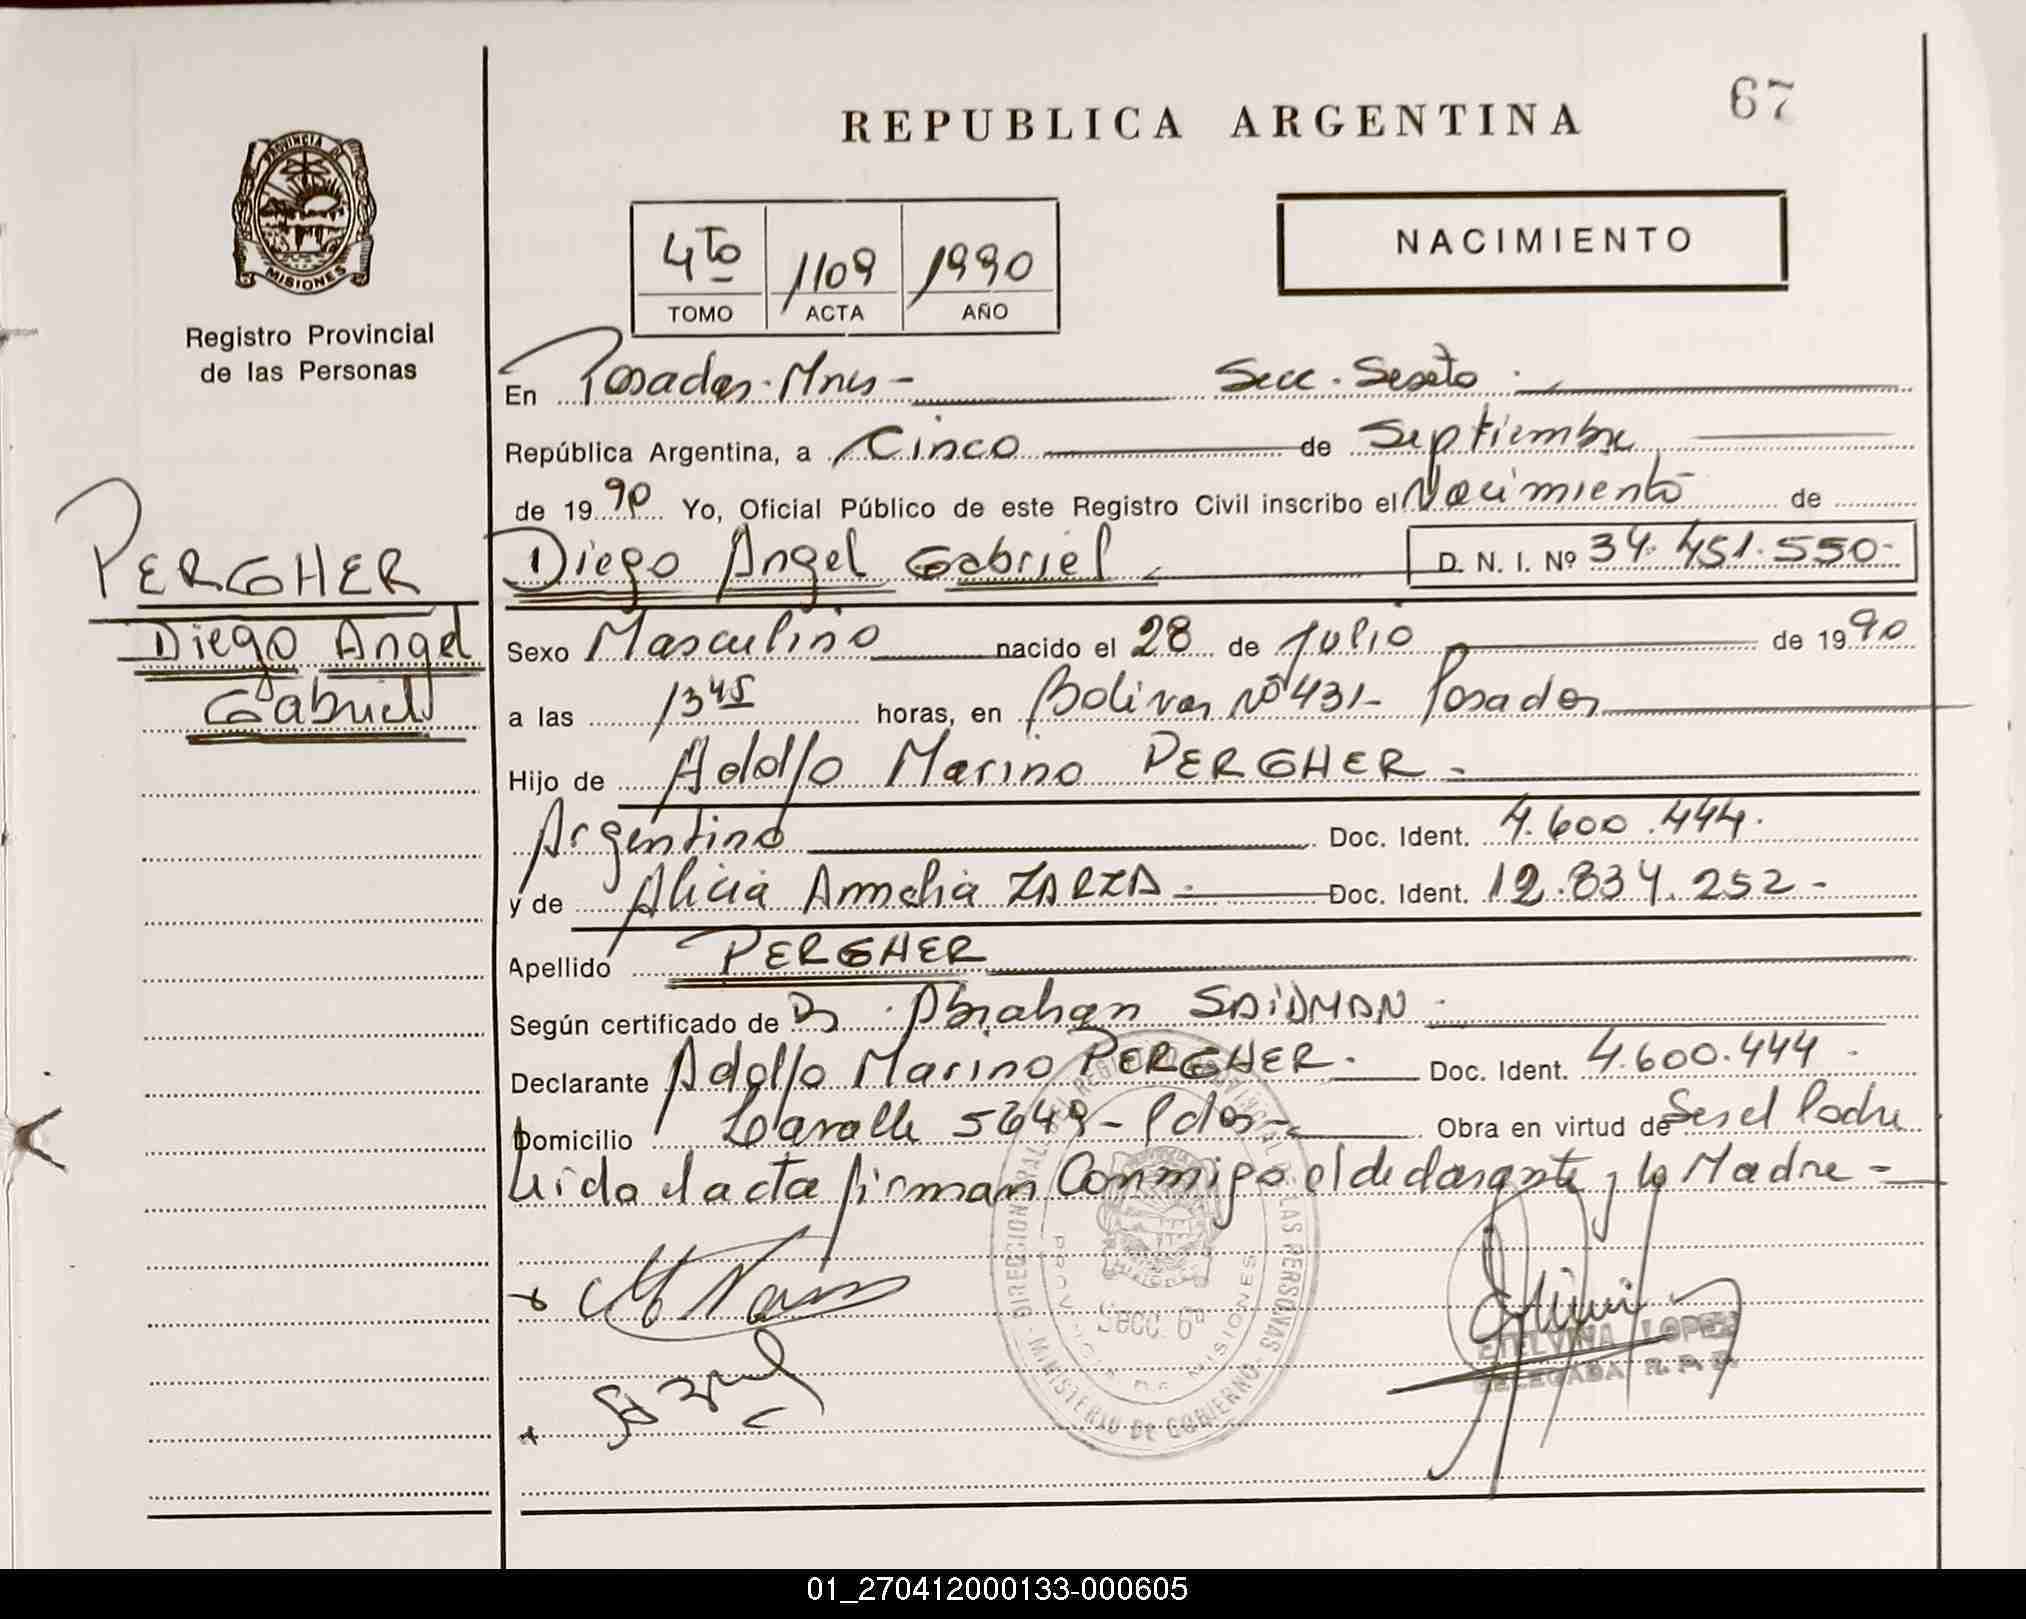 REPUBLICA ARGENTINA
67
PROVINCIA DE
MISIONES
Registro Provincial
de las Personas
4to 1109 1990
TOMO ACTA AÑO
NACIMIENTO
En Posadas. Mnes - Secc. Sexto
República Argentina, a Cinco de Septiembre
de 1990 Yo, Oficial Público de este Registro Civil inscribo el Nacimiento de
PERGHER
Diego Angel
Gabriel
Diego Angel Gabriel D. N. I. Nº 34.451.550-
Sexo Masculino nacido el 28 de Julio de 1990
a las 13 45 horas, en Bolivar Nº 431- Posadas
Hijo de Adolfo Marino PERGHER -
Argentino Doc. Ident. 4.600.444.
y de Alicia Amelia ZARZA - Doc. Ident. 12.834.252 -
Apellido PERGHER
Según certificado de Dr. Abrahan SAIDMAN
Declarante Adolfo Marino PERGHER. Doc. Ident. 4.600.444
Domicilio Lavalle 5649 - Pdas- Obra en virtud de Ser el Padre
Leida el acta firman Conmigo el declarante y la Madre -
DIRECCION GRAL. DEL REGISTRO PROVINCIAL DE LAS PERSONAS
MINISTERIO DE GOBIERNO
PROVINCIA DE MISIONES
Secc. 6ª
ETELVINA LOPEZ
DELEGADA R. P. P.
01_270412000133-000605